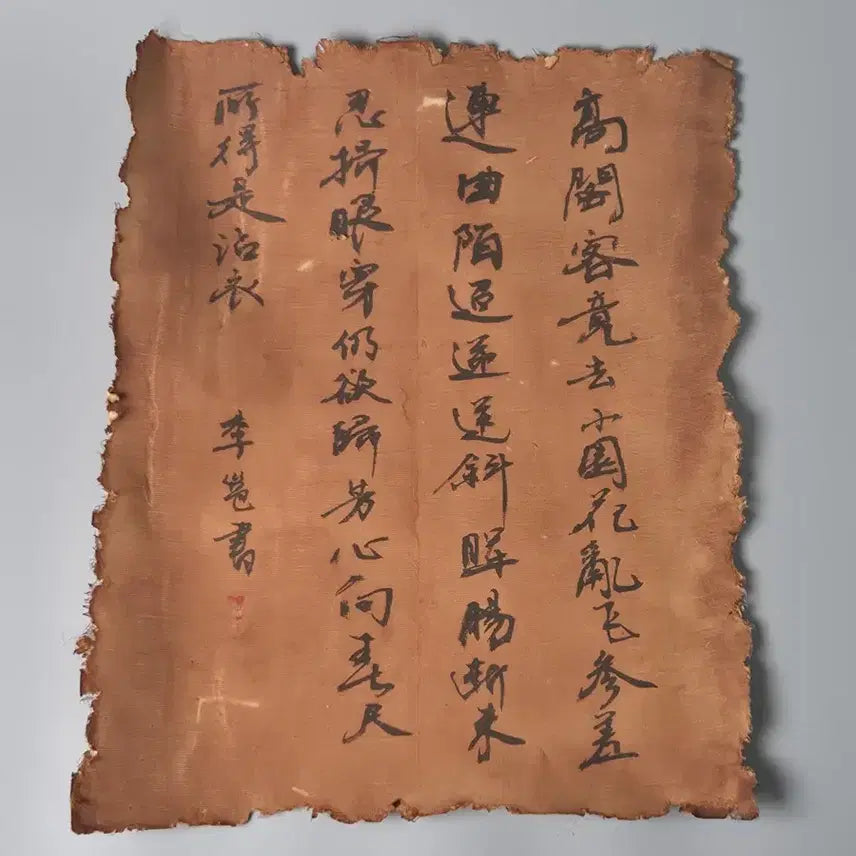 高閣客竟去小園花亂飞参差
連曲陌迢递送斜暉腸断未
忍掃眼穿仍欲歸芳心向春尽
所得是沾衣
李書